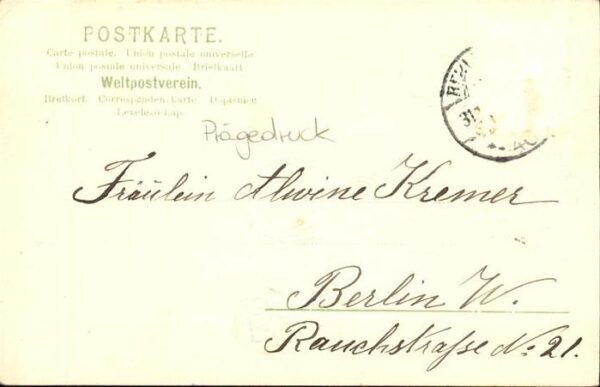 POSTKARTE.
Carte postale. Union postale universelle
Union postale universale. Briefkaart
Weltpostverein.
Brefkort. Correspondenzkarte Dopisnice
Levelező-Lap.
Prägedruck
Fräulein Alwine Kremer
Berlin W.
Rauchstraße No: 21.